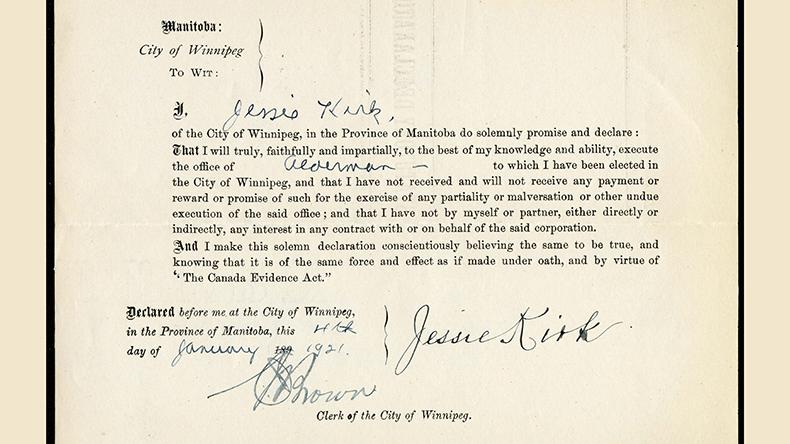 Manitoba:
City of Winnipeg
To Wit:
I, Jessie Kirk,
of the City of Winnipeg, in the Province of Manitoba do solemnly promise and declare :
That I will truly, faithfully and impartially, to the best of my knowledge and ability, execute
the office of Alderman — to which I have been elected in
the City of Winnipeg, and that I have not received and will not receive any payment or
reward or promise of such for the exercise of any partiality or malversation or other undue
execution of the said office; and that I have not by myself or partner, either directly or
indirectly, any interest in any contract with or on behalf of the said corporation.
And I make this solemn declaration conscientiously believing the same to be true, and
knowing that it is of the same force and effect as if made under oath, and by virtue of
"The Canada Evidence Act."
Declared before me at the City of Winnipeg,
in the Province of Manitoba, this 4th
day of January 189 1921.
Jessie Kirk
Brown
Clerk of the City of Winnipeg.